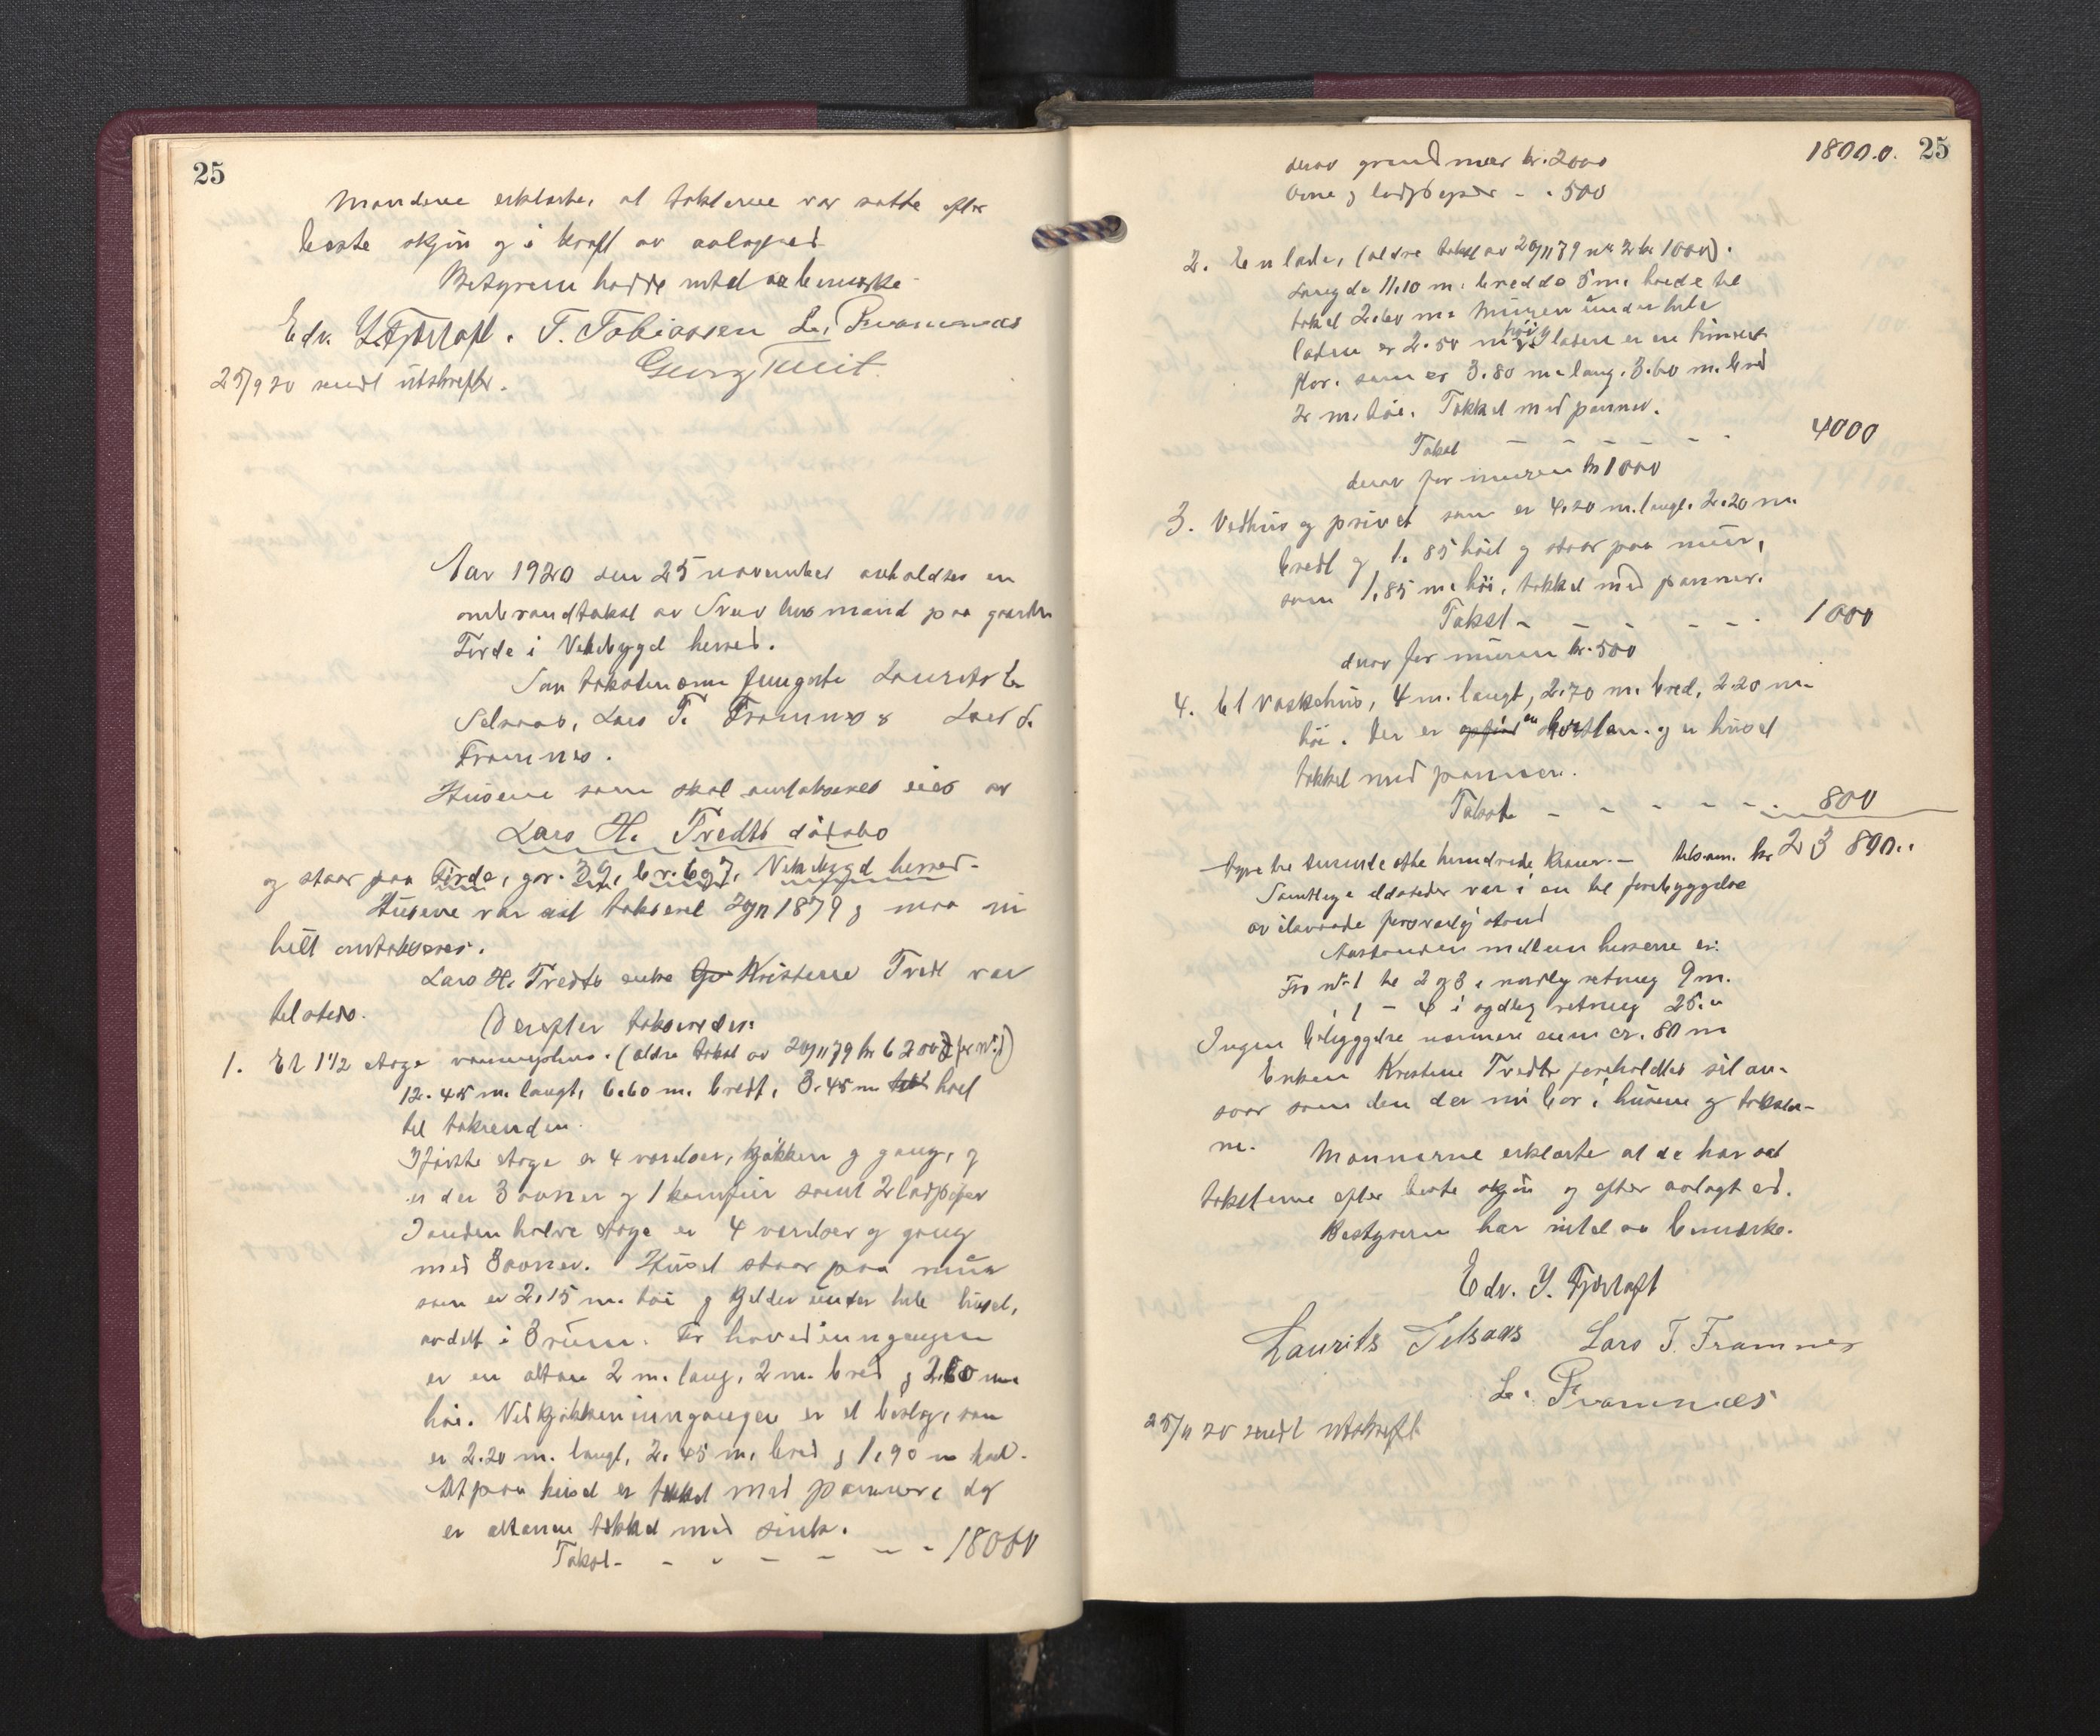 25
Mændene erklærte, at taksterne var satte efter
beste skjøn og i kraft av avlagt ed
Bestyreren hadde intet aa bemerke
Edv. Y. Fjørtoft. T. Tobiassen L. Framnæs
25/9 20 sendt utskrifter.
Georg
Aar 1920 den 25 november avholdtes en
ombrandtakst av hus mand paa gaarden
Førde i Vikebygd herred.
Som takstmænn fungerte Laurits
Selsaas, Lars T. Framnes & Lars
Framnes.
Husene som skal omtakseres eies av
Lars H. Tredts dødsbo
og staar paa Førde, gnr. 39, br. 6 og 7, Vikebygd herred.
Husene var sist taksert 20/11 1879 og maa nu
helt omtakseres.
Lars H. Tredts enke Kristense Tredt var
tilstede.
Derefter takserdes:
1. Et 1 1/2 etage vaaningshus. (ældre takst av 20/11 79 kr 6200 for nr. 1)
12.45 m. langt, 6.60 m. bredt, 3.45 m høit
til takrenden.
I første etage er 4 værelser, kjøkken og gang, og
er der 3 ovner og 1 komfur samt 2 ladpiper
I anden halve etage er 4 værelser og gang
med 3 ovner. Huset staar paa mur
som er 2,15 m. høi og kjelder under hele huset,
avdelt i 3 rum. For hovedinngangen
er en altan 2 m. lang, 2 m. bred og 2.60 m.
høi. Ved kjøkkeninngangen er et bislag, som
er 2.20 m. langt, 2.45 m. bred og 1,90 m høit.
Alt paa huset er tækket med panner, dog
er altanen tækket med sink.
Takst - - - - - - - 18000
1800.0. 25
derav grundmur kr. 2000
Ovne og ladpiper - - 500
2. En lade, (ældre takst av 20/11 79 nr 2 kr 1000).
Længde 11,10 m. bredde 5 m. høide til
taket 2.60 m. Muren under hele
laden er 2.50 m høi. I laden er en tømret
flor. som er 3.80 m. lang. 3.60 m. bred
2 m. høi. Tækket med panner.
Takst - - - - - - 4000
derav for muren kr 1000
3. Vedhus og privet som er 4.20 m. langt. 2.20 m.
bredt og 1.85 høit og staar paa mur,
som 1,85 m. høi. tækket med panner.
Takst - - - - - - 1000
derav for muren kr. 500
4. Et vaskehus, 4 m. langt, 2.70 m. bred, 2.20 m.
høi. Der er en skorsten. og er huset
tækket med panner.
Takst - - - - - 800
Tyve tre tusende otte hundrede kroner. - tilsam. kr 23 800..
Samtlige ildsteder var i en til forebyggelse
av ildsvaade forsvarlig stand
Avstanden mellem husene er:
Fra nr 1 til 2 og 3 i nordlig retning 9 m.
" 1 - 4 i sydlig retning 25. "
Ingen bebyggelse nærmere enn ca. 80 m
Enken Kristense Tredt foreholdtes sit an-
svar som den der nu bor i husene og takster-
ne. Mænnerne erklærte at de har sat
taksterne efter beste skjøn og efter avlagt ed.
Bestyreren har intet aa bemerke.
Edv. Y. Fjørtoft
Laurits Selsaas Lars T. Framnes
L. Framnæs
25/11 20 sendt utskrift